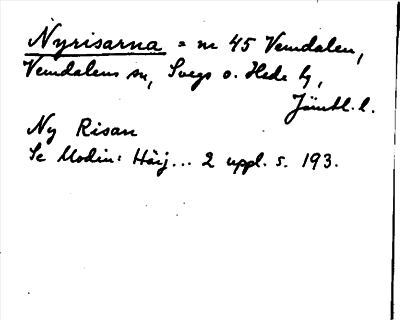 Nyrisarna = nr 45 Vemdalen,
Vemdalens sn, Svegs o. Hede tg,
Jämtl. l.
Ny Risan
Se Modin: Härj... 2 uppl. s. 193.